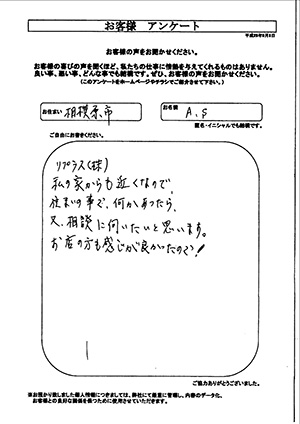 お客様 アンケート
平成29年5月5日
お客様の声をお聞かせください。
お客様の喜びの声を聞くほど、私たちの仕事に情熱を与えてくれるものはありません。
良い事、悪い事、どんな事でも結構です。ぜひ、お客様の声をお聞かせください。
(このアンケートをホームページやチラシにてご紹介させて下さい。)
お住まい 相模原市
お名前 A.S
匿名・イニシャルでも結構です。
ご自由にお書きください。
リプラス(株)
私の家からも近くなので、
住まいの事で、何かあったら、
又、相談に伺いたいと思います。
お店の方も感じが良かったので!
ご協力ありがとうございました。
※お預かり致しました個人情報につきましては、弊社にて厳重に管理し、内容のデータ化、
お客様との良好な関係を築くために使用させていただきます。